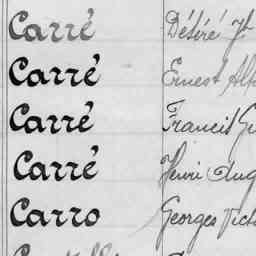 Carré Désiré Jh
Carré Ernest
Carré Francis
Carré Henri
Carro Georges